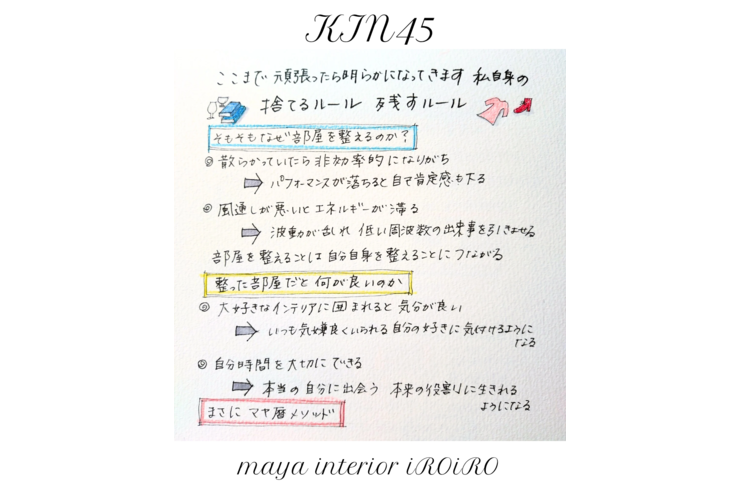 KIN45
ここまで 頑張ったら明らかになってきます 私自身の
捨てるルール 残すルール
そもそもなぜ部屋を整えるのか?
◎ 散らかっていたら非効率的になりがち
➡ パフォーマンスが落ちると自己肯定感も下る
◎ 風通しが悪いとエネルギーが滞る
➡ 波動が乱れ 低い周波数の出来事を引きよせる
部屋を整えることは自分自身を整えることにつながる
整った部屋だと何が良いのか
◎ 大好きなインテリアに囲まれると気分が良い
➡ いつも気嫌良くいられる 自分の好きに気付けるように
なる
◎ 自分時間を大切にできる
➡ 本当の自分に出会う 本来の役割りに生きれる
ようになる
まさに マヤ暦メソッド
maya interior iROiRO